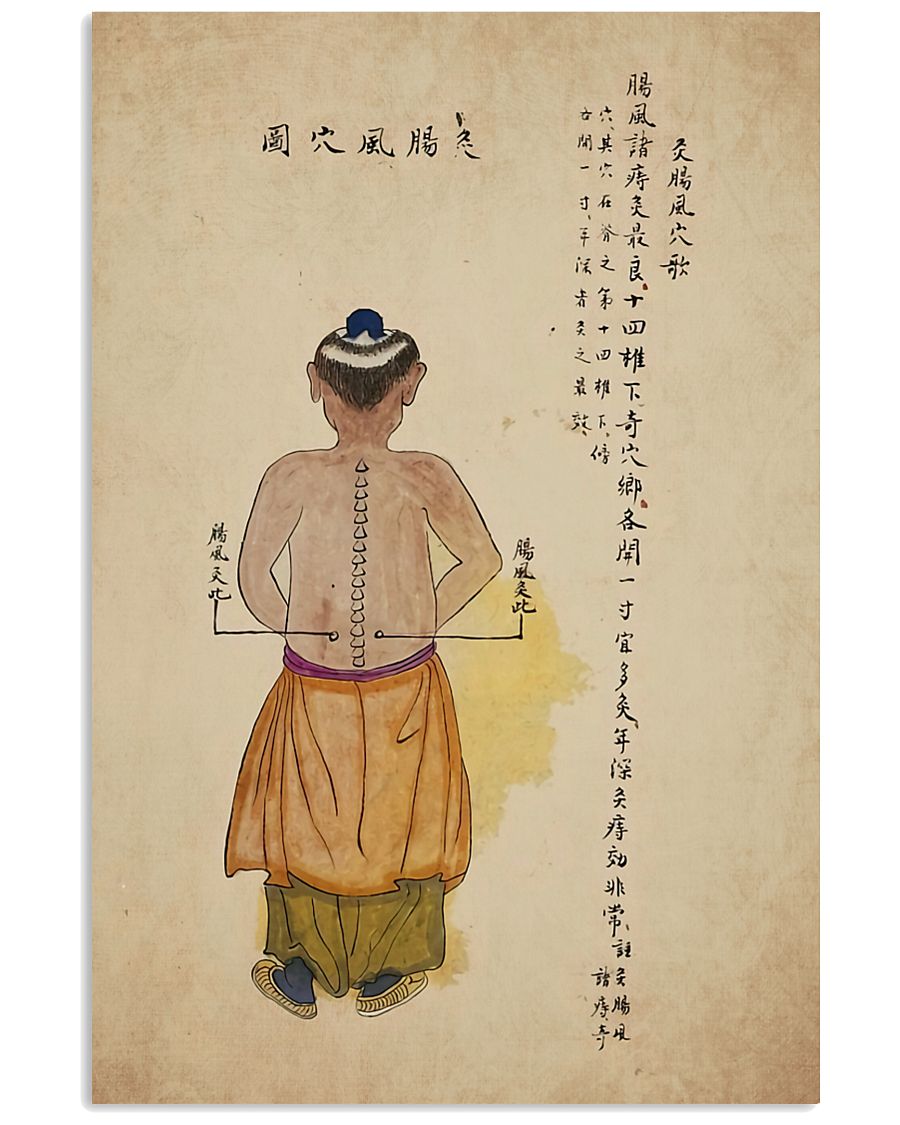 灸腸風穴歌
腸風諸痔灸最良十四椎下奇穴鄉各開一寸宜多灸年深灸痔効非常註灸腸風
諸痔奇
穴其穴在脊之第十四椎下傍
各開一寸年深者灸之最效
灸腸風穴圖
腸風灸此
腸風灸此